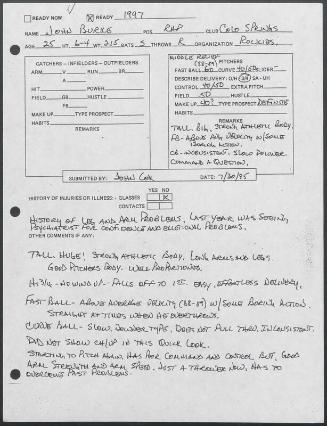 READY NOW READY 1997
NAME JOHN BURKE POS. RHP CLUB COLO SPRINGS
AGE 25 HT. 6-4 WT. 215 BATS S THROW R ORGANIZATION ROCKIES
CATCHERS - INFIELDERS - OUTFIELDERS
ARM V RUN 3R
A
HIT POWER
FIELD GR HUSTLE
FB
MAKE UP TYPE PROSPECT
HABITS
REMARKS
SUBMITTED BY: JOHN COX DATE: 7/30/95
MIDDLE RELIEF
(88-89) PITCHERS
FAST BALL 60 CURVE 40/50 CH
DESCRIBE DELIVERY: O/H 3/4 SA - U/H
CONTROL 40/50 EXTRA PITCH
FIELD 50 HUSTLE
MAKE UP 40? TYPE PROSPECT DEFINITE
HABITS
REMARKS
TALL, BIG, STRONG ATHLETIC BODY.
FB- ABOVE AVG VELOCITY W/SOME
BORING ACTION.
CB-INCONSISTENT. SLOW DOWNER
COMMAND A QUESTION.
YES NO
HISTORY OF INJURIES OR ILLNESS - GLASSES X
CONTACTS
HISTORY OF LEG AND ARM PROBLEMS. LAST YEAR WAS SEEING
PSYCHIATRIST FOR CONFIDENCE AND EMOTIONAL PROBLEMS.
OTHER COMMENTS IF ANY:
TALL. HUGE! STRONG ATHLETIC BODY. LONG ARMS AND LEGS.
GOOD PITCHERS BODY. WELL PROPORTIONED.
HI 3/4 - NO WINDUP - FALLS OFF TO 1ST. EASY, EFFORTLESS DELIVERY.
FAST BALL - ABOVE AVERAGE VELOCITY (88-89) W/SOME BORING ACTION.
STRAIGHT AT TIMES WHEN HE OVERTHROWS.
CURVE BALL - SLOW, DOWNER TYPE, DOES NOT PULL THRU, INCONSISTENT.
DID NOT SHOW CH/UP IN THIS QUICK LOOK.
STARTING TO PITCH AGAIN. HAS POOR COMMAND AND CONTROL BUT, GOOD
ARM STRENGTH AND ARM SPEED. JUST A THROWER NOW, HAS TO
OVERCOME PAST PROBLEMS.